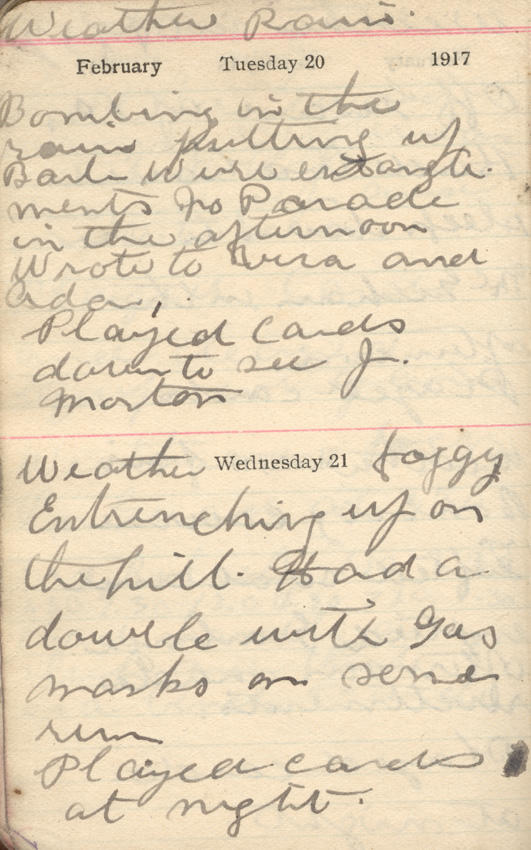 Weather Rain.
February Tuesday 20 1917
Bombing in the
rain putting up
Barb Wire entangle
ments No Parade
in the afternoon
Wrote to Vera and
Ada.
Played Cards
down to see J.
Morton
Weather Wednesday 21 foggy
Entrenching up on
the hill. Had a
double with Gas
masks on some
run
Played cards
at night.